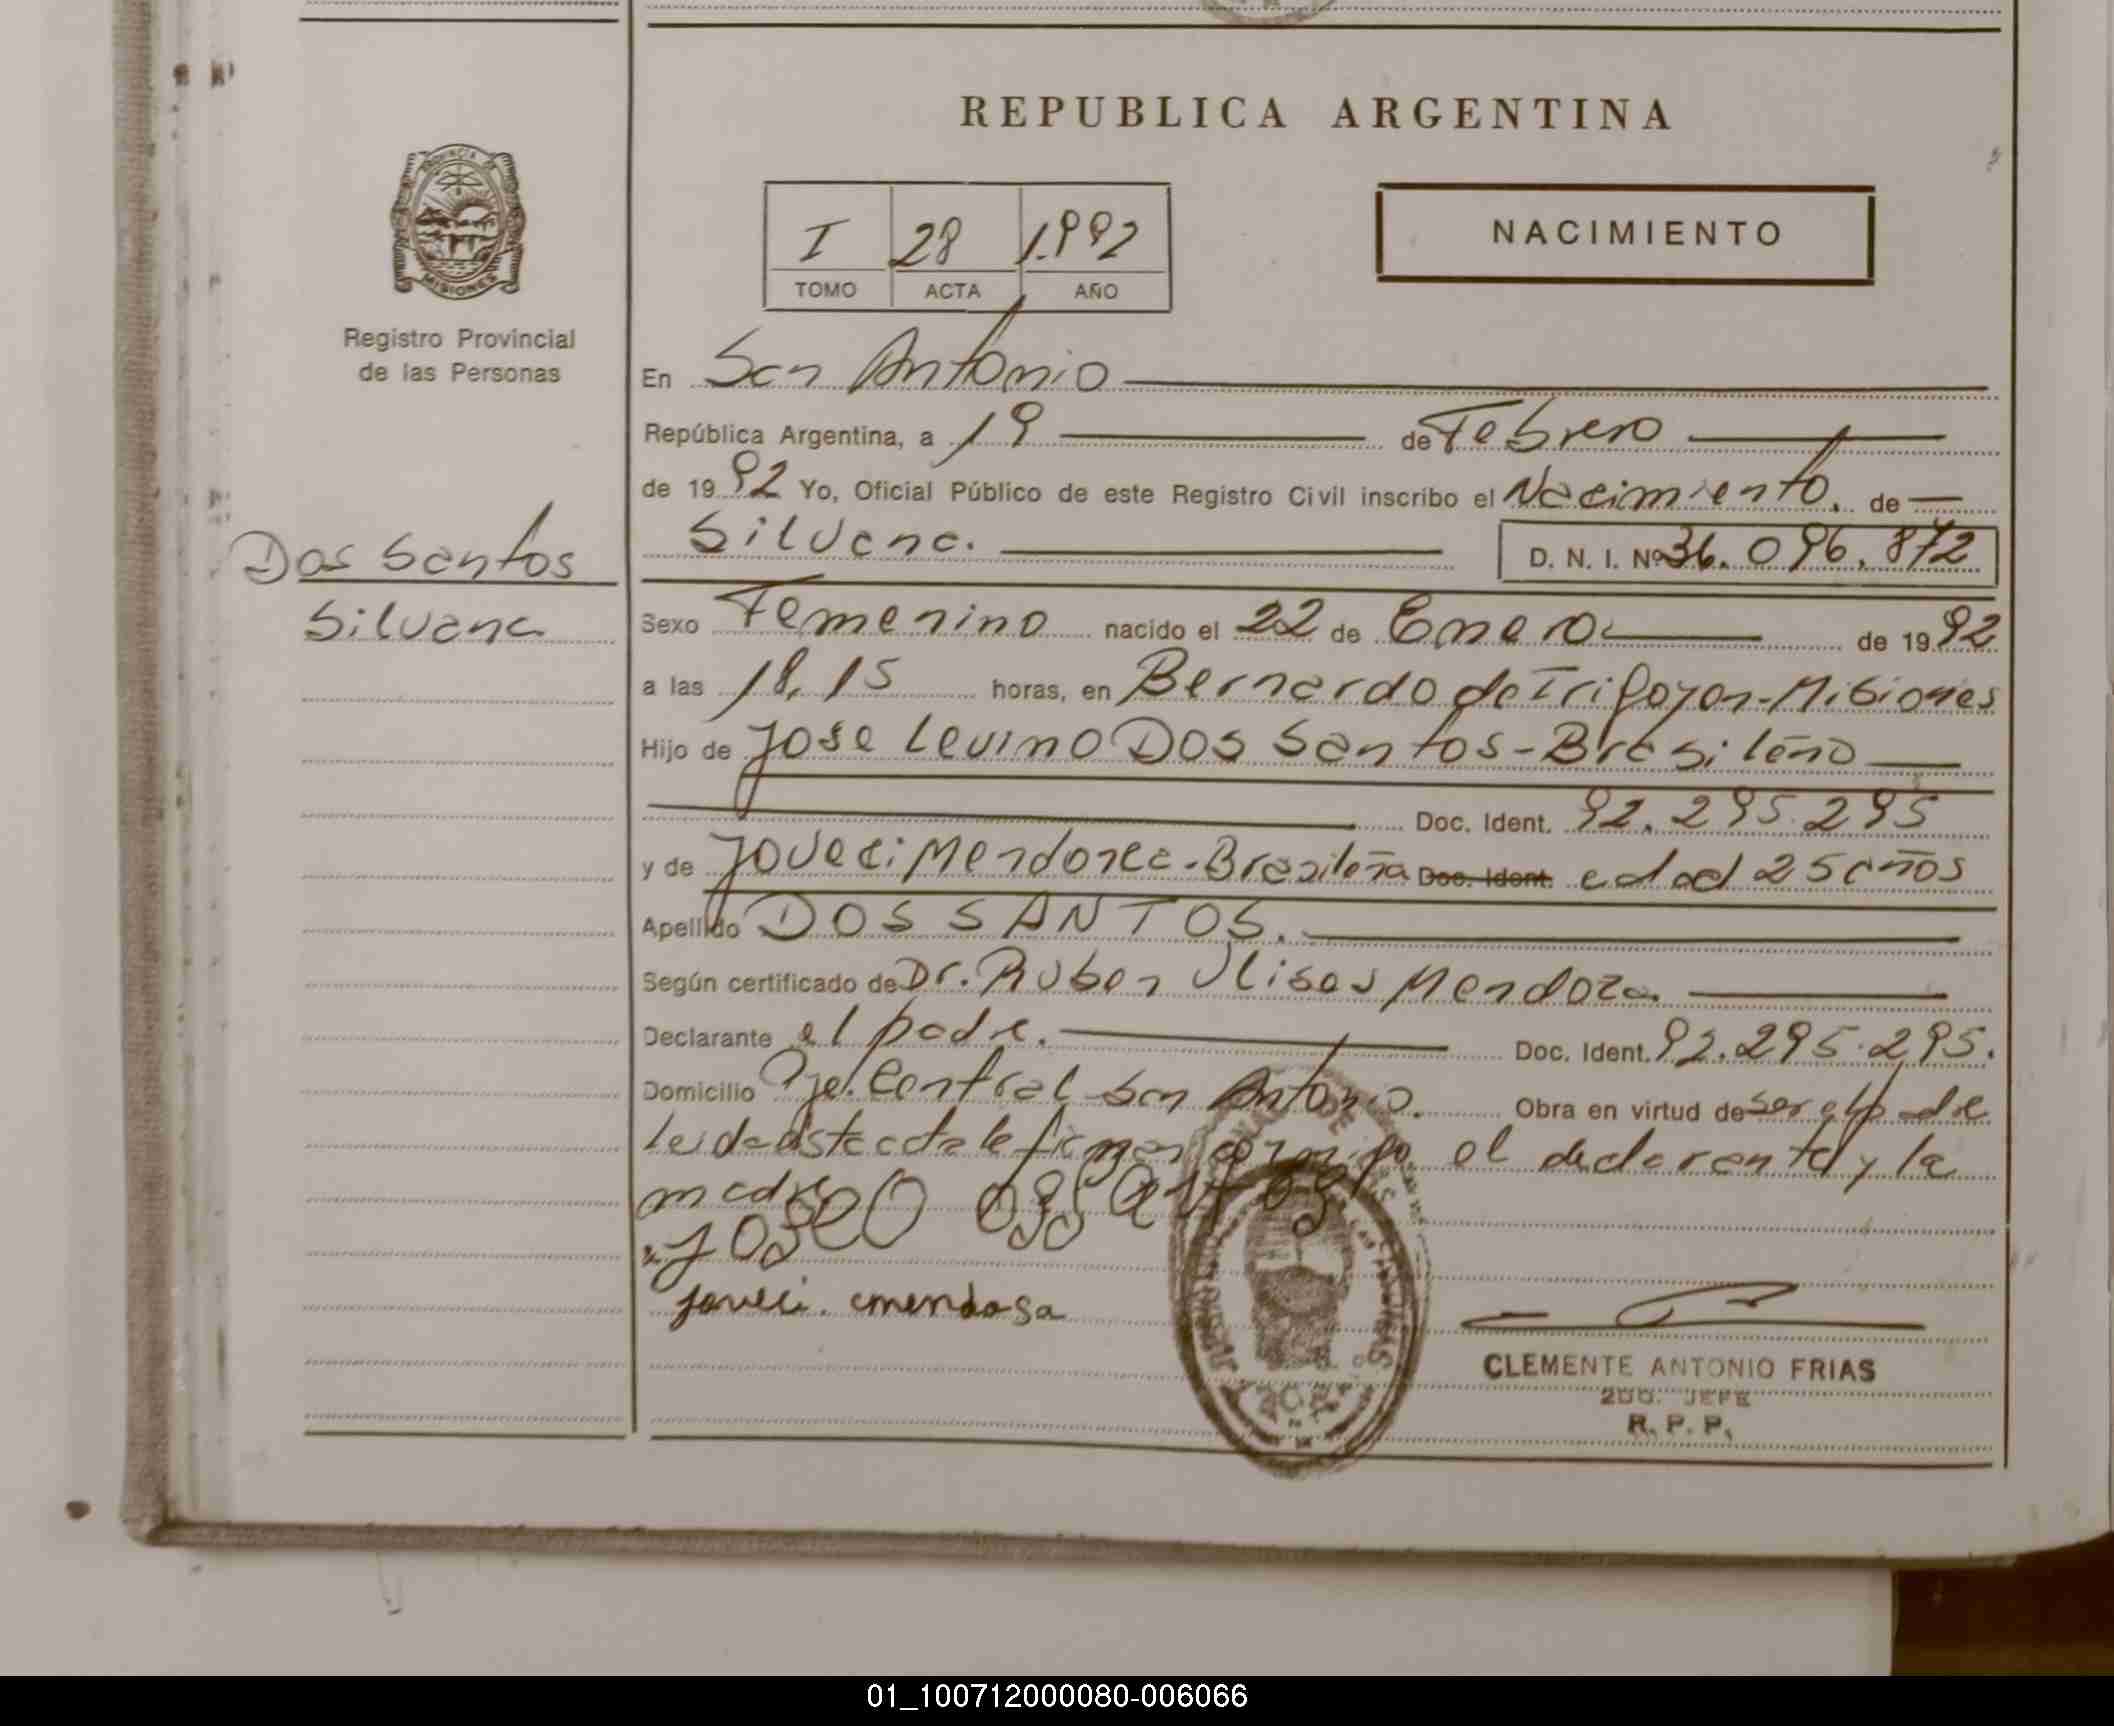 REPUBLICA ARGENTINA
I 28 1.992
TOMO ACTA AÑO
NACIMIENTO
PROVINCIA DE
MISIONES
Registro Provincial
de las Personas
Dos Santos
Silvana
En San Antonio
República Argentina, a 19 de Febrero
de 1992 Yo, Oficial Público de este Registro Civil inscribo el Nacimiento. de
Silvana. D. N. I. Nº 36.096.872
Sexo Femenino nacido el 22 de Enero de 1992
a las 18,15 horas, en Bernardo de Irigoyen-Misiones
Hijo de Jose Levino Dos Santos-Brasileño
Doc. Ident. 92.295.295
y de Joveci Mendonca-Brasileña Doc. Ident. edad 25 años
Apellido DOS SANTOS.
Según certificado de Dr. Ruben Ulises Mendoza.
Declarante el padre. Doc. Ident. 92.295.295.
Domicilio Pje. Central San Antonio. Obra en virtud de ser el padre
Leida esta acta la firman conmigo el declarante y la
madre
Joveci. mendosa
CLEMENTE ANTONIO FRIAS
2DO. JEFE
R. P. P.
01_100712000080-006066